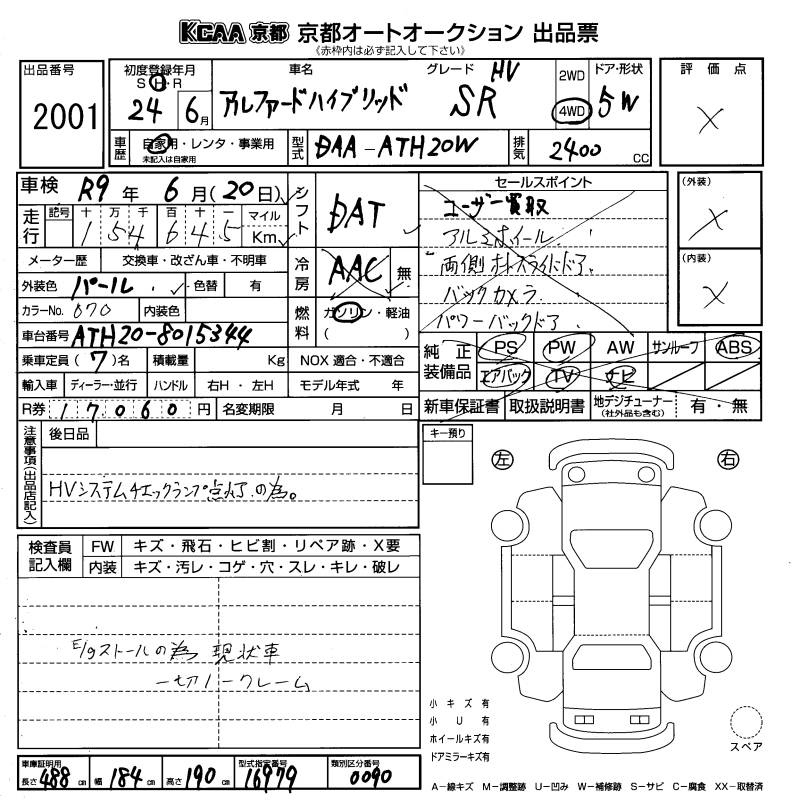 KCAA 京都 京都オートオークション 出品票
《赤枠内は必ず記入して下さい》
出品番号 2001
初度登録年月 S・H・R 24年 6月
車名 アルファードハイブリッド
グレード HV SR
2WD 4WD
ドア・形状 5W
評価点 ×
車歴 自家用・レンタ・事業用 未記入は自家用
型式 DAA-ATH20W
排気 2400 CC
車検 R9年 6月(20日)
シフト DAT
セールスポイント
ユーザー買取
アルミホイール
両側オートスライドドア
バックカメラ
パワーバックドア
(外装) ×
(内装) ×
走行 記号 十 万 千 百 十 一 マイル Km
154645
メーター歴 交換車・改ざん車・不明車
冷房 AAC 無
外装色 パール 色替 有
カラーNo. 070 内装色
燃料 ガソリン・軽油 ( )
車台番号 ATH20-8015344
乗車定員 (7)名 積載量 Kg NOX 適合・不適合
輸入車 ディーラー・並行 ハンドル 右H・左H モデル年式 年
R券 17060円 名変期限 月 日
純正装備品 PS PW AW サンルーフ ABS
エアバック TV ナビ
新車保証書 取扱説明書 地デジチューナー (社外品も含む) 有・無
注意事項(出品店記入)
後日品
HVシステムチェックランプ点灯の為。
キー預り
左 右
検査員記入欄
FW キズ・飛石・ヒビ割・リペア跡・X要
内装 キズ・汚レ・コゲ・穴・スレ・キレ・破レ
E/gストールの為 現状車
一切ノークレーム
小キズ有
小U有
ホイールキズ有
ドアミラーキズ有
スペア
車庫証明用 長さ488cm 幅184cm 高さ190cm
型式指定番号 16979
類別区分番号 0090
A-線キズ M-調整跡 U-凹み W-補修跡 S-サビ C-腐食 XX-取替済